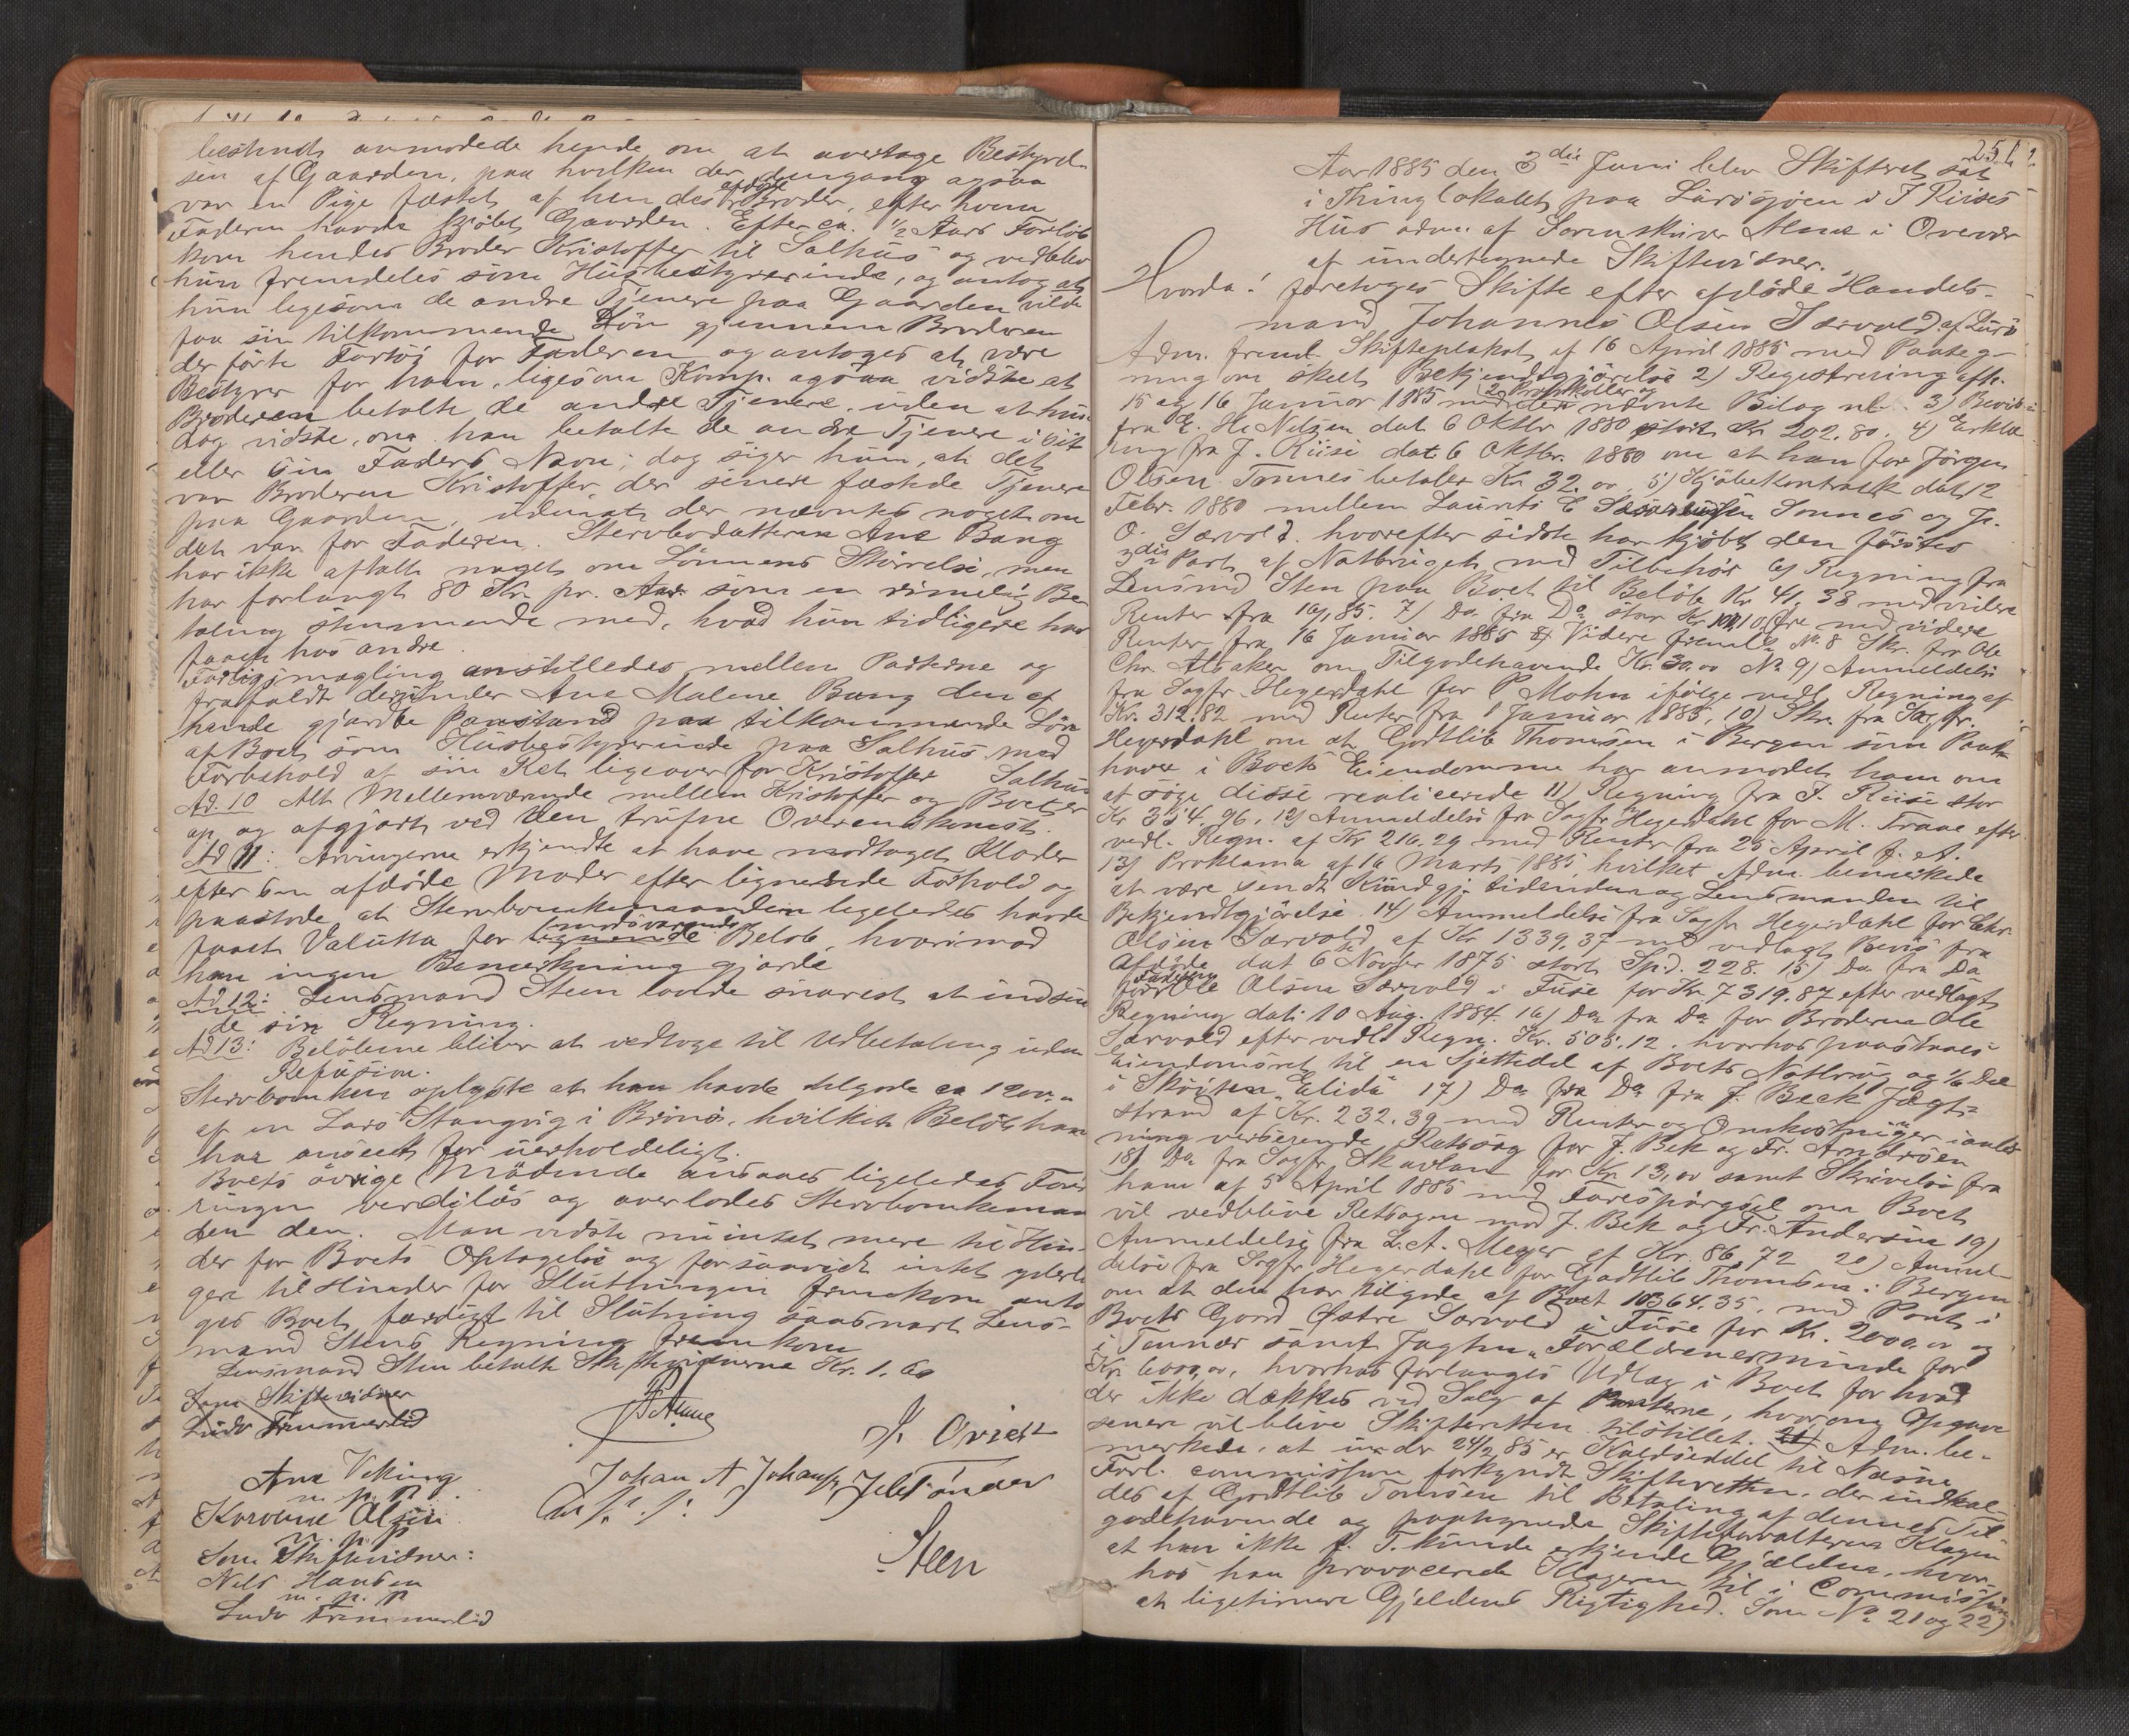 bestandt anmodede hende om at overtage Bestyrel-
sen af Gaarden, paa hvilken der dengang ogsaa
var en Pige fæstet af hendes afdøde Broder, efter hvem
Faderen havde kjöbt Gaarden. Efter ca. 1/2 Aars Forlöb
kom hendes Broder Kristoffer til Salhus og vedblev
hun fremdeles som Husbestyrerinde, og antog at
hun ligesom de andre Tjenere paa Gaarden vilde
faa sin tilkommende Lön gjennem Broderen
der förte Fartöj for Faderen og antoges at være
Bestyrer for ham, ligesom Komp. ogsaa vidste at
Broderen betalte de andre Tjenere, uden at hun
dog vidste, om han betalte de andre Tjenere i sit
eller sin Faders Navn; dog siger hun, at det
var Broderen Kristoffer, der senere fæstede Tjenere
paa Gaarden, uden at der nævntes noget om
det var for Faderen. Stervbodatteren Ane Bang
har ikke aftalt noget om Lönnens Störrelse, men
har forlangt 80 Kr. pr. Aar som en rimelig Be-
taling stemmende med, hvad hun tidligere har
faaet hos andre.
Forligsmægling anstilledes mellem Parterne og
frafaldt derunder Ane Malene Bang den af
hende gjorde Paastand paa tilkommende Lön
af Boet som Husbestyrerinde paa Salhus med
Forbehold af sin Ret ligeover for Kristoffer Salhus
Ad. 10 Alt Mellemværende mellem Kristoffer og Boet er
op og afgjort ved den trufne Overenskomst.
Ad 11: Arvingerne erkjendte at have modtaget Klæder
efter sin afdöde Moder efter lignende Forhold og
paastod at Stervboenkemanden ligeledes havde
faaet Valutta for modsvarende Belöb, hvorimod
han ingen Bemærkning gjorde
Ad 12: Lensmand Steen lovede snarest at indsen
de sin Regning.
Ad 13: Belöbene bliver at vedtage til Udbetaling uden
Refusion.
Stervboenkem. oplyste at han havde tilgode ca 1200.-
af en Lars Stangvig i Brönö, hvilket Belöb han
har anseet for uerholdeligt.
Boets övrige Mödende ansaaes ligeledes Ford-
ringen verdilös og overlodes Stervboenkeman
den den. Man vidste nu intet mere til Hin-
der for Boets Optagelse og forsaavidt intet yderli
gere til Hinder for Slutningen fremkom anto
ges Boet færdigt til Slutning saasnart Lens-
mand Stens Regning fremkom
Lensmand Sten betalte Skiftevidnerne Kr. 1.60
Som Skiftevidner
Ludv Trimmerlid
Ane Viking
m. p. p.
Karoline Olsen
m. p. p
Som Skiftevidner:
Nils Hansen
m. p. p
Ludv Trimmerlid
Johan A Johansen
m. p. p.
Steen
251
Aar 1885 den 3die Juni blev Skifteret sat
i Thinglokalet paa Luröygjoen i J Riises
Hus adm. af Sorenskriver Alme i Overvær
af undertegnede Skiftevidner.
Hvorda! foretoges Skifte efter afdöde Handels-
mand Johannes Olsen Sørvold af Lurö
Adm. freml. Skifteplakat af 16 April 1885 med Paateg-
ning om skeet Bekjendtgjörelse 2) Registrering afh.
15 og 16 Januar 1885 med 2 Protokoller og deri nævnte Bilag nl. 3) Bevis
fra E. H. Nilsen dat 6 Oktbr 1880 stort Kr 202.80. 4) Erklæ
ring fra J. Riise dat 6 Oktbr. 1880 om at han for Jörgen
Olsen Tonnes betaler Kr 32.00. 5) Kjöbekontrakt dat 12
Febr. 1880 mellem Laurits E Tonnes og J.
O. Sørvold. hvorefter sidste har kjöbt den förstes
3die Part af Notbruget med Tilbehör 6) Regning fra
Lensmd Sten paa Boet til Belöb Kr 41.38 med videre
Renter fra 16/1 85. 7) Do. fra Do stor Kr 10 Öre med videre
Renter fra 16 Januar 1885 Videre fremla. No. 8 Skr. fra Ole
Chr. Alsaker om Tilgodehavende Kr. 30.00 No 9) Anmeldelse
fra Sagfr. Hegerdahl for P Mohn ifölge vedl. Regning af
Kr. 312.82 med Renter fra 1 Januar 1885. 10) Skr. fra Sagfr.
Hegerdahl om at Godtlib Thomsen i Bergen som Pant-
haver i Boets Eiendomme har anmodet ham om
at söge disse realiserede 11) Regning fra J. Riise stor
Kr 354.96. 12) Anmeldelse fra Sagfr Hegerdahl for M. Traae efter
vedl. Regn. af Kr 216.29 med Renter fra 25 April f. A.
13) Proklama af 16 Marts 1885, hvilket Adm. bemerkede
at være sendt Kundgj. tidenden og Lensmanden til
Bekjendtgjörelse. 14) Anmeldelse fra Sagfr Hegerdahl for Chr.
Olsen Sørvold af Kr 1339.37 med vedlagt Bevis fra
Afdöde dat 6te Novbr 1875 stort Spd. 228. 15) Do fra Do
for Faderen Ole Olsen Sørvold i Fuse for Kr. 7319.87 efter vedlagt
Regning dat. 10 Aug. 1884. 16) Do fra Do for Broderen Ole
Sørvold efter vedl Regn. Kr. 505.12. hvorhos paastaaes
Eiendomsret til en Sjettedel af Boets Notbrug og 1/6 Del
i Sköiten "Elida" 17) Do fra Do fra J. Beck Jægt-
strand af Kr. 232.39 med Renter og Omkostninger i anled
ning verserende Retssag for J. Bek og Fr. Andersen
18) Do fra Sagfr Skavlan for Kr 13,00 samt Skrivelse fra
ham af 5 April 1885 med Forespörgsel om Boet
vil vedblive Retssagen mod J. Bek og Fr. Andersen 19)
Anmeldelse fra L. A. Meyer af Kr. 86.72 20) Anmel-
delse fra Sagfr Hegerdahl for Godtlib Thomsen i Bergen
om at den har tilgode af Boet 10364.35. med Pant i
Boets Gaard Østre Sørvold i Fuse for Kr. 2000.00 og
i Tønder samt Jagten "Forældrenes minde" for
Kr 6000,00, hvorhos forlanges Udlæg i Boet for hvad
der ikke dækkes ved Salg af Panterne, hvorom Opgave
senere vil blive Skifteretten tilstillet. Adm. be-
merkede, at under 24/2 85 er Kaldseddel til Nesne
Forl. commission forkyndt Skifteretten, der indkal-
des af Godtlib Tomsen til Betaling af dennes Til
godehavende og paategnede Skifteforvalteren Klagen
at han ikke p. T. kunde erkjende Gjælden, hvor-
hos han provocerede Klageren til i Commissionen
at legitimere Gjeldens Rigtighed. Som No 21 og 22)